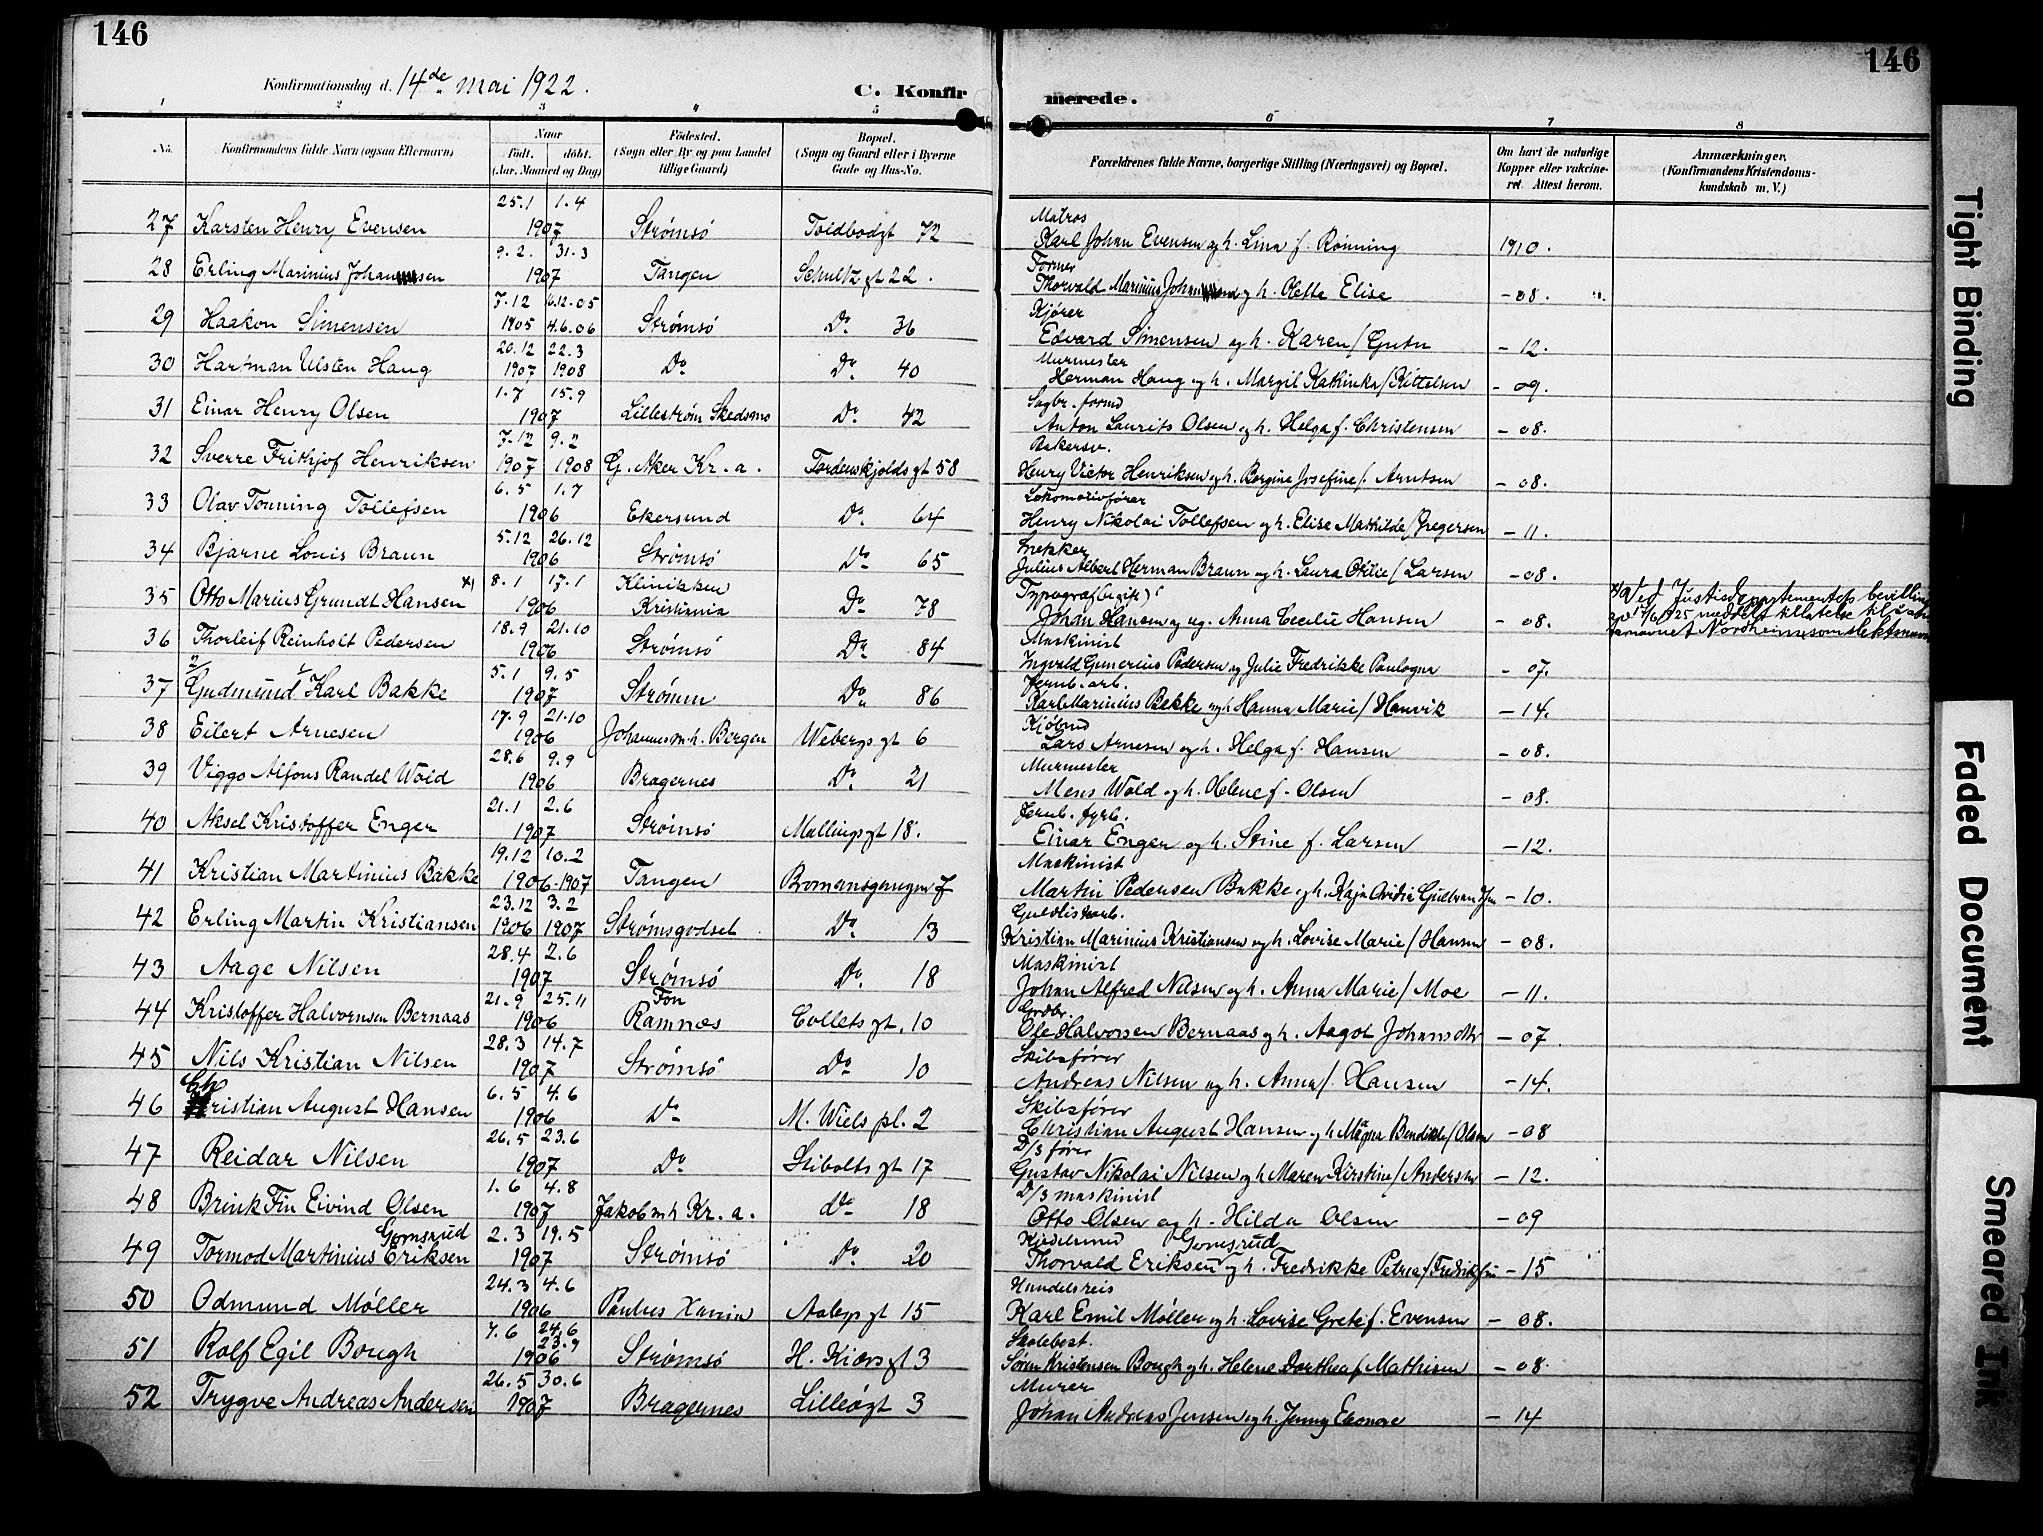 146
146
Konfirmationsdag d. 14de mai 1922.
C. Konfirmerede.
1 2 3 4 5 6 7 8
No. Konfirmandens fulde Navn (ogsaa Efternavn) Naar Født. døbt. (Aar, Maaned og Dag) Fødested. (Sogn eller By og paa Landet tillige Gaard) Bopæl. (Sogn og Gaard eller i Byerne Gade og Hus-No. Forældrenes fulde Navne, borgerlige Stilling (Næringsvei) og Bopæl. Om havt de naturlige Kopper eller vakcineret. Attest herom. Anmærkninger. (Konfirmandens Kristendomskundskab m. V.)
27 Karsten Henry Evensen 25.1 1.4 1907 Strømsø Toldbodgt 72 Matros Karl Johan Evensen og h. Lina f. Rønning 1910.
28 Erling Marinius Johansen 9.2. 31.3 1907 Tangen Schultz gt 22. Former Thorvald Marinius og h. Olette Elise -08.
29 Haakon Simensen 7.12 1905 6.12.05 4.6.06 Strømsø Do 36 Kjører Edvard Simensen og h. Karen f. -12.
30 Hartman Ulsten Haug 20.12 1907 22.3 1908 Do Do 40 Murmester Herman Haug og h. Margit Kathinka f. Kittelsen -09.
31 Einar Henry Olsen 1.7 15.9 1907 Lillestrøm Skedsmo Do 42 Sagbr. formd Anton Laurits Olsen og h. Helga f. Christensen -08.
32 Sverre Frithjof Henriksen 7.12 1907 9.2 1908 G. Aker Kr.a. Tordenskjolds gt 58 Bakersv. Henry Victor Henriksen og h. Borgine Josefine f. Arntsen -08.
33 Olav Tonning Tollefsen 6.5 1.7 1906 Ekersund Do 64 Lokomotivfører Henry Nikolai Tollefsen og h. Elise Mathilde f. Gregersen -11.
34 Bjarne Louis Braun 5.12 26.12 1906 Strømsø Do 65 Snekker Julius Albert Herman Braun og h. Laura Otilie f. Larsen -08.
35 Otto Marius Grundt Hansen x) 8.1 17.1 1906 Klinikken Kristiania Do 78 Typograf (ugift) Johan Hansen og ug. Anna Cecilie Hansen -08. x) Ved Justisdepartementets bevilling av 1925 meddelt tillatelse til å ta navnet Nordheim som slektsnavn
36 Thorleif Reinholt Pedersen 18.9 21.10 1906 Strømsø Do 84 Maskinist Ingvald Gunerius Pedersen og Julie Fredrikke -07.
37 Gudmund Karl Bakke 5.1 9.5 1907 Strømm Do 86 Jernb. arb. Karl Marinius Bekke og h Hanna Marie f. Hanvik -14.
38 Eilert Arnesen 17.9 21.10 1906 Johannes m.h. Bergen Webergs gt 6 Kjøbmd Lars Arnesen og h. Helga f. Hansen -08.
39 Viggo Alfons Randel Wold 28.6 9.9 1906 Bragernes Do 21 Murmester Mens Wold og h. Helene f. Olsen -08.
40 Aksel Kristoffer Enger 21.1 2.6 1907 Strømsø Mallings gt 18. Jernb. fyrb. Einar Enger og h. Stine f. Larsen -12.
41 Kristian Martinius Bakke 19.12 1906 10.2 1907 Tangen Maskinist Martin Pedersen Bakke og h. Kaja -10.
42 Erling Martin Kristiansen 23.12 1906 3.2 1907 Strømsgodset Do 13 Guldlistarb. Kristian Marinius Kristiansen og h. Lovise Marie f. Hansen -08.
43 Aage Nilsen 28.4 2.6 1907 Strømsø Do 18 Maskinist Johan Alfred Nilsen og h. Anna Marie f. Moe -11.
44 Kristoffer Halvornsen Bernaas 21.9 25.11 1906 Fon Ramnæs Collets gt. 10 Grdbr. Ole Halvorsen Bernaas og h. Aagot Johansdtr -07.
45 Nils Kristian Nilsen 28.3 14.7 1907 Strømsø Do 10 Skibsfører Andreas Nilsen og h. Anna f. Hansen -14.
46 Christian August Hansen 6.5 4.6 1906 Do M. Wiels pl. 2 Skibsfører Christian August Hansen og h Magna Bendikte f. Olsen -08
47 Reidar Nilsen 26.5 23.6 1907 Do Stibolts gt 17 D/s fører Gustav Nikolai Nilsen og h Maren Kirstine f. Andersen -12.
48 Brink Fin Eivind Olsen 1.6 4.8 1907 Jakob m h Kr.a. Do 18 D/s maskinist Otto Olsen og h. Hilda Olsen -09
49 Tormod Martinius Eriksen Gomsrud 2.3 19.5 1907 Strømsø Do 20 Kjedelsmed Thorvald Eriksen Gomsrud og h. Fredrikke Petrea f. -15
50 Odmund Møller 24.3 4.6 1906 Paulus Kr.ania Aaleps gt 15 Handelsreis Karl Emil Møller og h. Lovise Grete f. Evensen -08.
51 Rolf Egil Bough 7.6 24.6 23.9 1906 Strømsø H. Kiærs gt 3 Skolebest. Søren Kristensen Bough og h. Helene Dorthea f Mathisen -08.
52 Trygve Andreas Andersen 26.5 30.6 1907 Bragernes Lilleø gt 3 Murer Johan Andreas Jensen og h. Jenny Eleonore -14
Tight Binding
Faded Document
Smeared Ink